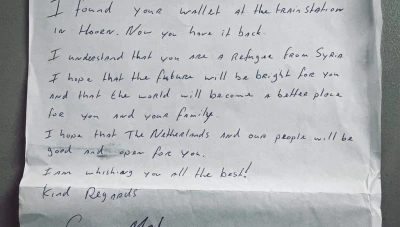 I found your wallet at the trainstation
in Hoorn. Now you have it back.
I understand that you are a Refugee from Syria
I hope that the future will be bright for you
and that the world will become a better place
for you and your family.
I hope that The Netherlands and our people will be
good and open for you.
I am whishing you all the best!
Kind Regards